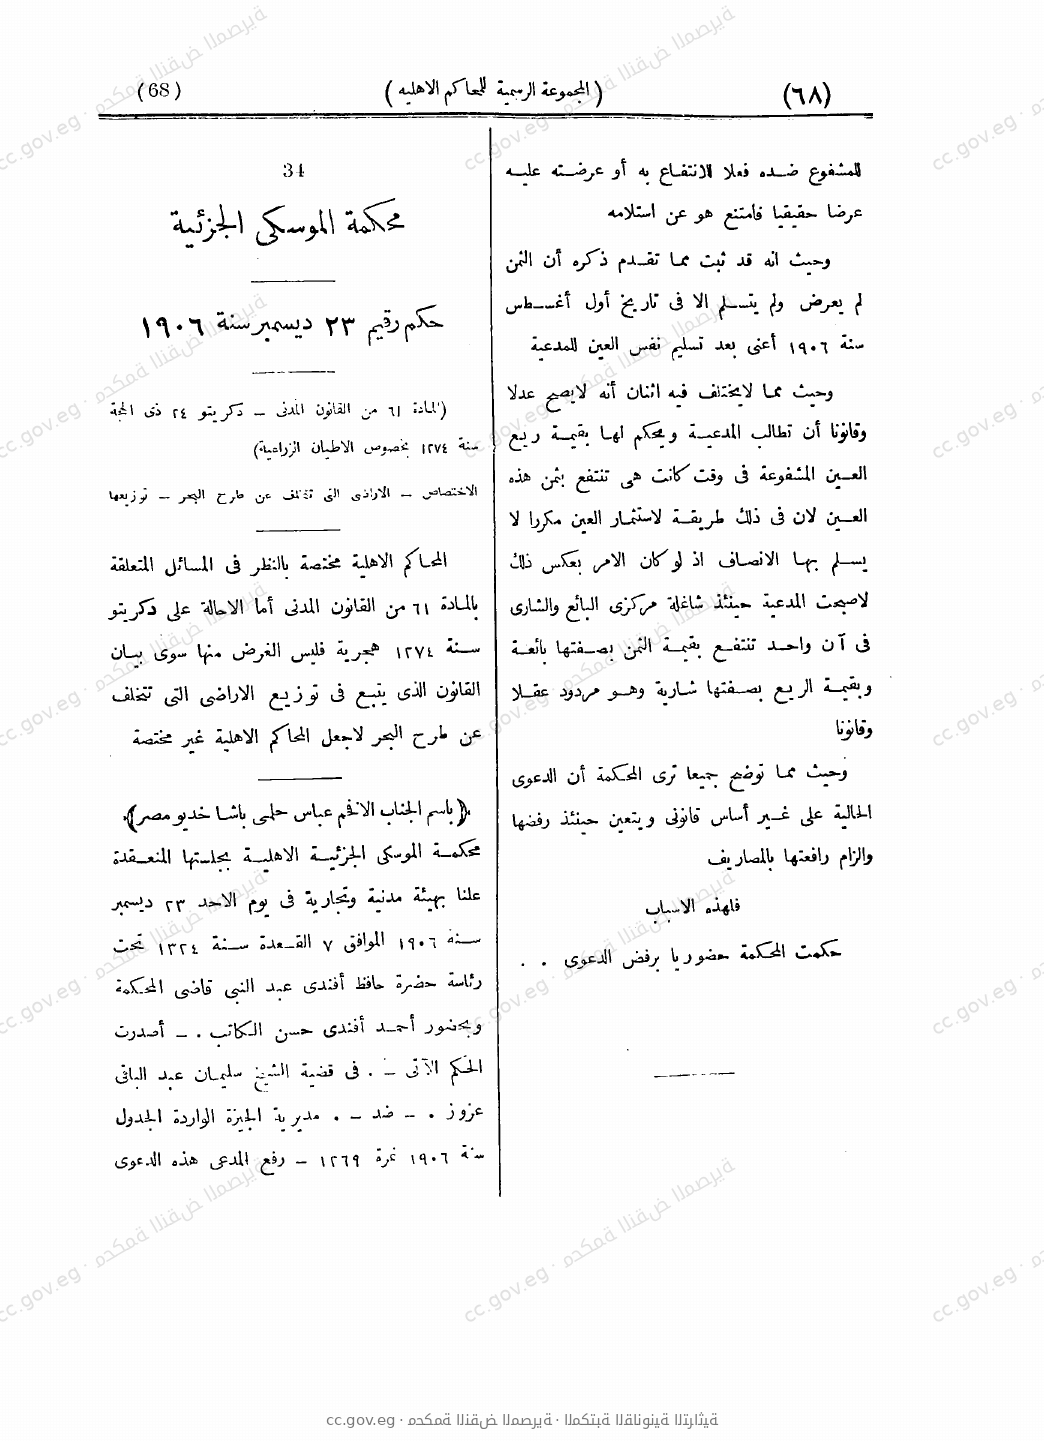 (٦٨)
(المجموعة الرسمية للمحاكم الاهليه)
(68)
للمشفوع ضده فعلا للانتفاع به أو عرضته عليه
عرضا حقيقيا فامتنع هو عن استلامه
وحيث انه قد ثبت مما تقدم ذكره أن الثمن
لم يعرض ولم يتسلم الا فى تاريخ أول أغسطس
سنة ١٩٠٦ أعنى بعد تسليم نفس العين للمدعية
وحيث مما لايختلف فيه اثنان أنه لايصح عدلا
وقانونا أن تطالب المدعية ويحكم لها بقيمة ريع
العين المشفوعة فى وقت كانت هى تنتفع بثمن هذه
العين لان فى ذلك طريقة لاستثمار العين مكررا لا
يسلم بها الانصاف اذ لو كان الامر بعكس ذلك
لاصبحت المدعية حينئذ شاغلة مركزى البائع والشارى
فى آن واحد تنتفع بقيمة الثمن بصفتها بائعة
وبقيمة الريع بصفتها شارية وهو مردود عقلا
وقانونا
وحيث مما توضح جميعا ترى المحكمة أن الدعوى
الحالية على غير أساس قانونى ويتعين حينئذ رفضها
والزام رافعتها بالمصاريف
فلهذه الاسباب
حكمت المحكمة حضوريا برفض الدعوى . .
34
محكمة الموسكى الجزئية
حكم رقيم ٢٣ ديسمبر سنة ١٩٠٦
(المادة ٦١ من القانون المدنى – دكريتو ٢٤ ذى الحجة
سنة ١٢٧٤ بخصوص الاطيان الزراعية)
الاختصاص – الاراضى التى تتخلف عن طرح البحر – توزيعها
المحاكم الاهلية مختصة بالنظر فى المسائل المتعلقة
بالمادة ٦١ من القانون المدنى أما الاحالة على دكريتو
سنة ١٢٧٤ هجرية فليس الغرض منها سوى بيان
القانون الذى يتبع فى توزيع الاراضى التى تتخلف
عن طرح البحر لاجعل المحاكم الاهلية غير مختصة
(باسم الجناب الافخم عباس حلمى باشا خديو مصر)
محكمة الموسكى الجزئية الاهلية بجلستها المنعقدة
علنا بهيئة مدنية وتجارية فى يوم الاحد ٢٣ ديسمبر
سنة ١٩٠٦ الموافق ٧ القعدة سنة ١٣٢٤ تحت
رئاسة حضرة حافظ أفندى عبد النبى قاضى المحكمة
وبحضور أحمد أفندى حسن الكاتب . – أصدرت
الحكم الآتى – . فى قضية الشيخ سليمان عبد الباقى
عزوز . – ضد – . مديرية الجيزة الواردة الجدول
سنة ١٩٠٦ نمرة ١٢٦٩ – رفع المدعى هذه الدعوى
cc.gov.eg · محكمة النقض المصرية · المكتبة القانونية التراثية